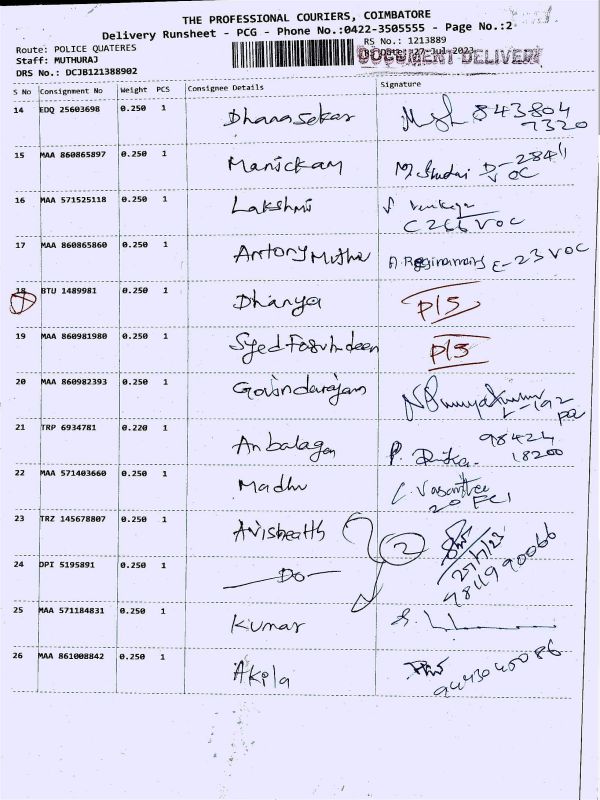 THE PROFESSIONAL COURIERS, COIMBATORE
Delivery Runsheet - PCG - Phone No.:0422-3505555 - Page No.:2
Route: POLICE QUATERES
RS No.: 1213889
Staff: MUTHURAJ
27-Jul-2023
DOCUMENT DELIVERY
DRS No.: DCJB121388902
S No Consignment No Weight PCS Consignee Details Signature
14 EDQ 25603698 0.250 1 Dhanasekar 843804
7320
15 MAA 860865897 0.250 1 Manickam
VOC
16 MAA 571525118 0.250 1 Lakshmi
C 266 VOC
17 MAA 860865860 0.250 1 Antony Muthu E-23 VOC
18 BTU 1489981 0.250 1 Dhanya P/S
19 MAA 860981980 0.250 1 Syed P/S
20 MAA 860982393 0.250 1 Govindarajam
21 TRP 6934781 0.220 1 Anbalagan 98424
P. 18200
22 MAA 571403660 0.250 1 Madhu
20 FCI
23 TRZ 145678807 0.250 1
2
27/7/23
24 DPI 5195891 0.250 1 Do 9811990066
25 MAA 571184831 0.250 1 Kumar
26 MAA 861008842 0.250 1 Akila
9443045086